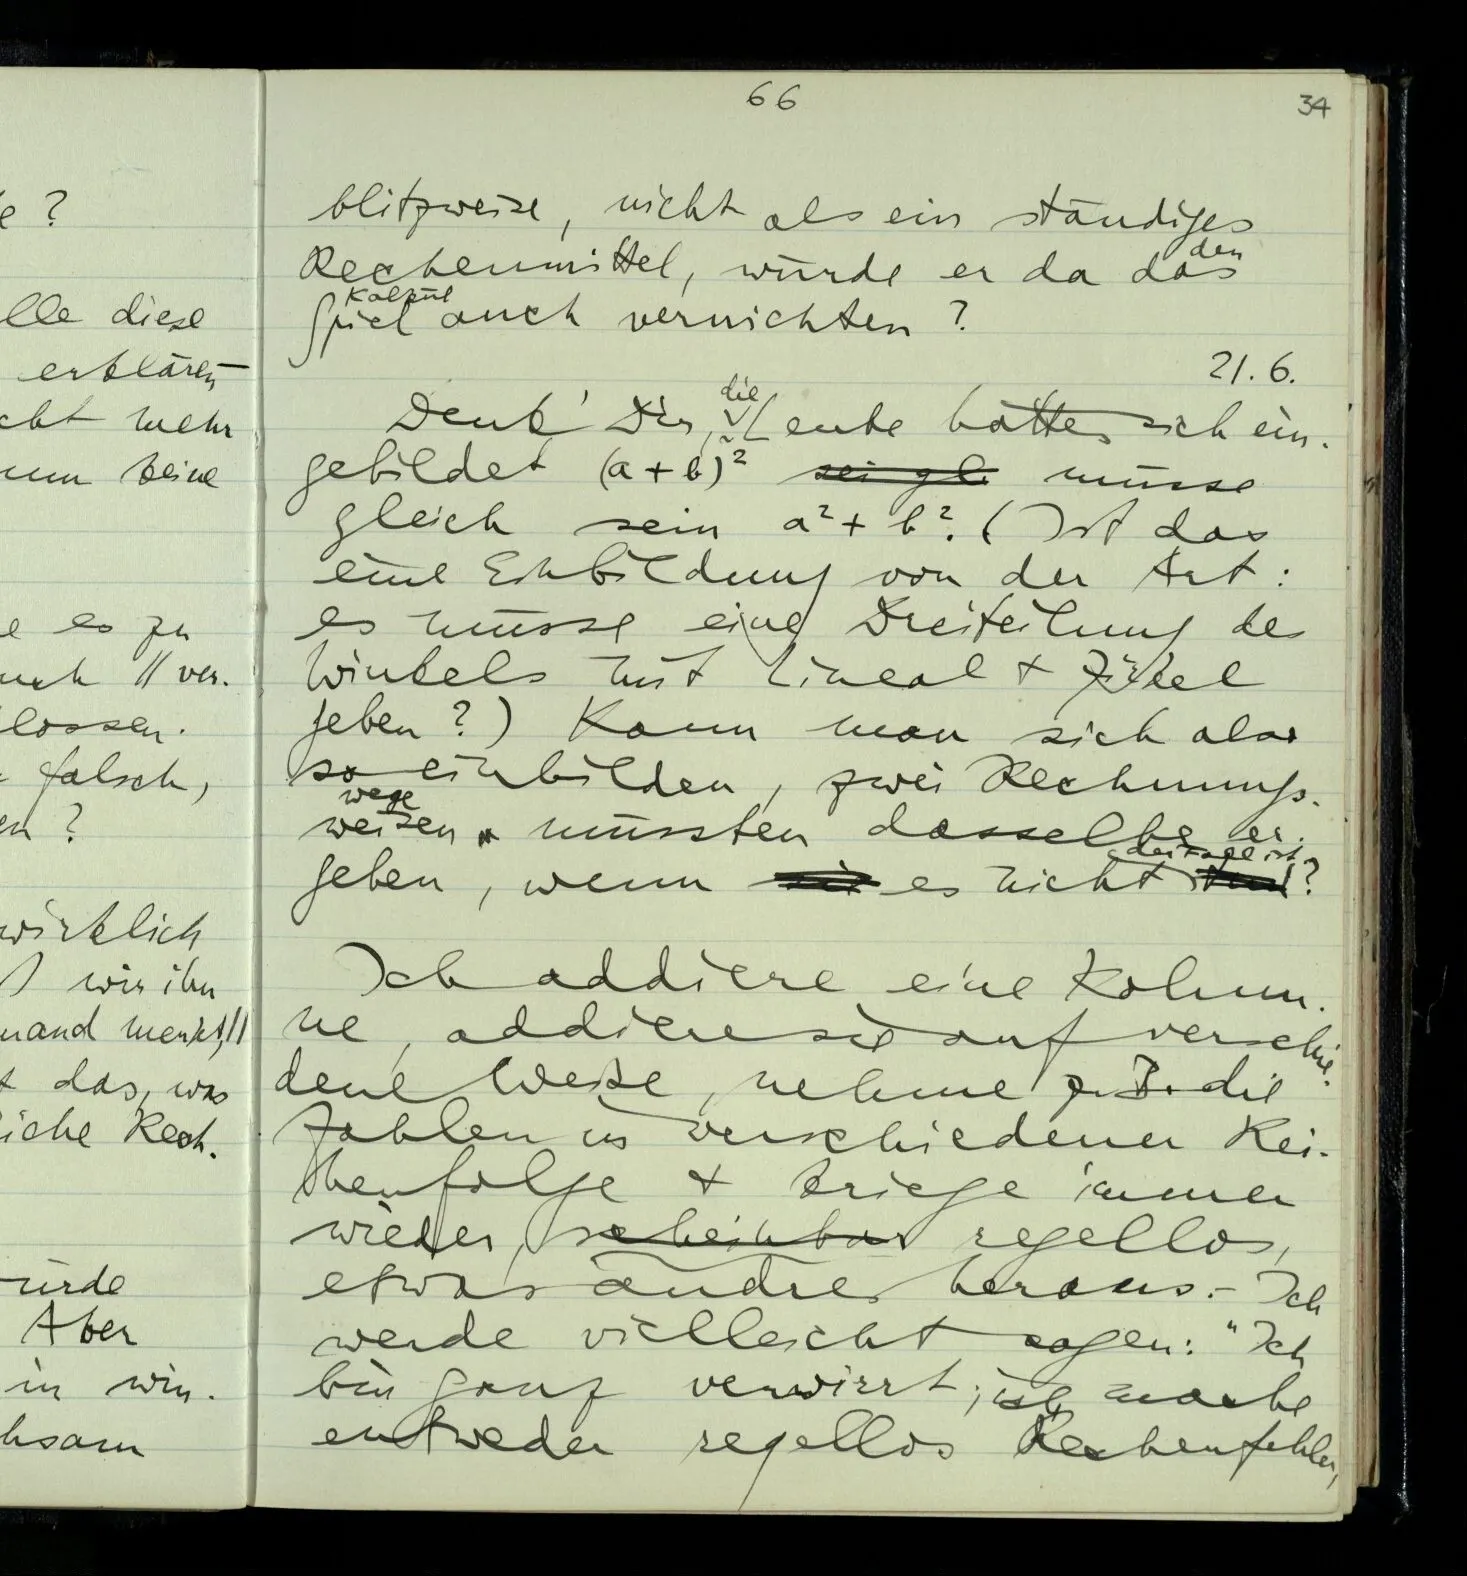 66
34
e ?
lle diese
erklären
cht mehr
nun keine
e es zu
uch || ver-
lossen.
falsch,
en ?
wirklich
wir ihn
mand merkt, ||
t das, was
iche Rech-
ürde
Aber
in win-
hsam
blitzweise, nicht als ein ständiges
den
Rechenmittel, würde er da das
Kalkül
Spiel auch vernichten ?
21. 6.
die
Denk' Dir, Leute hätten sich ein-
gebildet (a + b)² sei gl. müsse
gleich sein a² + b². (Ist das
eine Einbildung von der Art:
es müsse eine Dreiteilung des
Winkels mit Lineal + Zirkel
geben ?) Kann man sich also
so einbilden, zwei Rechnungs-
wege
weisen müssten dasselbe er-
dasselbe ist
geben, wenn sie es nicht tun ?
Ich addiere eine Kolum-
ne, addiere sie auf verschie-
dene Weise, nehme z.B. die
Zahlen in verschiedener Rei-
henfolge + kriege immer
wieder, scheinbar regellos,
etwas andres heraus. – Ich
werde vielleicht sagen: "Ich
bin ganz verwirrt, ich mache
entweder regellos Rechenfehler,